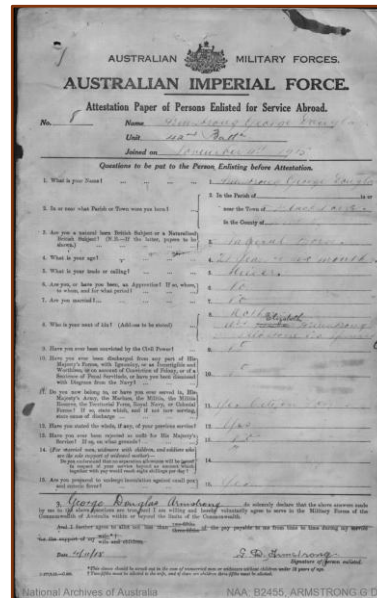 AUSTRALIAN MILITARY FORCES.
AUSTRALIAN IMPERIAL FORCE.
Attestation Paper of Persons Enlisted for Service Abroad.
No. 8 Name Armstrong George Douglas
Unit 42nd Battn
Joined on November 4th 1915
Questions to be put to the Person Enlisting before Attestation.
1. What is your Name? 1. Armstrong George Douglas
2. In or near what Parish or Town were you born? 2. In the Parish of in or
near the Town of
in the County of
3. Are you a natural born British Subject or a Naturalised
British Subject? (N.B.—If the latter, papers to be
shown.) 3. Natural Born
4. What is your age? 4. 21 years months
5. What is your trade or calling? 5. Miner
6. Are you, or have you been, an Apprentice? If so, where,
to whom, and for what period? 6. No
7. Are you married? 7. No
8. Who is your next of kin? (Address to be stated) 8. Mother
Elizabeth
Mrs Armstrong
9. Have you ever been convicted by the Civil Power? 9. No
10. Have you ever been discharged from any part of His
Majesty's Forces, with Ignominy, or as Incorrigible and
Worthless, or on account of Conviction of Felony, or of a
Sentence of Penal Servitude, or have you been dismissed
with Disgrace from the Navy? 10. No
11. Do you now belong to, or have you ever served in, His
Majesty's Army, the Marines, the Militia, the Militia
Reserve, the Territorial Force, Royal Navy, or Colonial
Forces? If so, state which, and if not now serving,
state cause of discharge 11.
12. Have you stated the whole, if any, of your previous service? 12. Yes
13. Have you ever been rejected as unfit for His Majesty's
Service? If so, on what grounds? 13. No
14. (For married men, widowers with children, and soldiers who
are the sole support of widowed mother)—
Do you understand that no separation allowance will be issued
in respect of your service beyond an amount which
together with pay would reach eight shillings per day? 14.
15. Are you prepared to undergo inoculation against small pox
and enteric fever? 15. Yes
I, George Douglas Armstrong do solemnly declare that the above answers made
by me to the above questions are true, and I am willing and hereby voluntarily agree to serve in the Military Forces of the
Commonwealth of Australia within or beyond the limits of the Commonwealth.
And I further agree to allot not less than two-fifths three-fifths of the pay payable to me from time to time during my service
for the support of my wife
wife and children.
Date 4/11/15 G. D. Armstrong
Signature of person enlisted.
National Archives of Australia NAA: B2455, ARMSTRONG G D